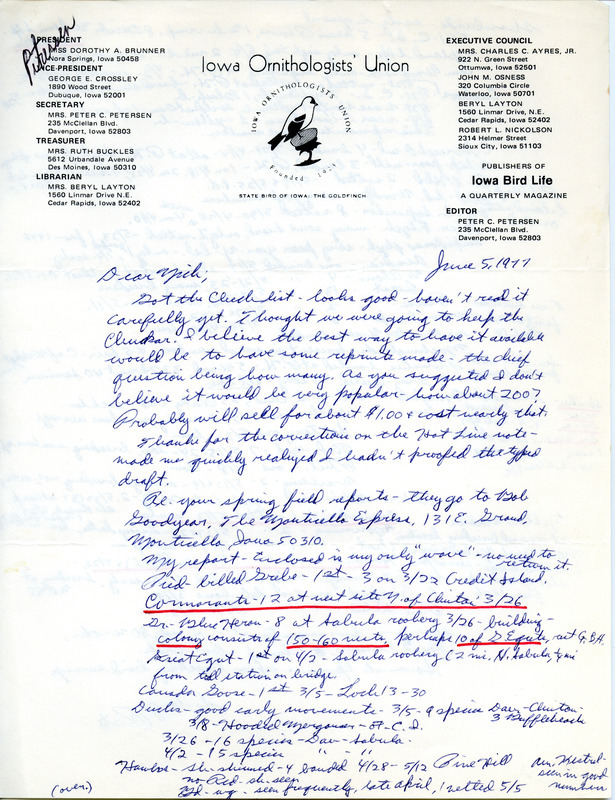 Petersen
PRESIDENT
MISS DOROTHY A. BRUNNER
Nora Springs, Iowa 50458
VICE-PRESIDENT
GEORGE E. CROSSLEY
1890 Wood Street
Dubuque, Iowa 52001
SECRETARY
MRS. PETER C. PETERSEN
235 McClellan Blvd.
Davenport, Iowa 52803
TREASURER
MRS. RUTH BUCKLES
5612 Urbandale Avenue
Des Moines, Iowa 50310
LIBRARIAN
MRS. BERYL LAYTON
1560 Linmar Drive N.E.
Cedar Rapids, Iowa 52402
Iowa Ornithologists' Union
IOWA ORNITHOLOGISTS UNION
Founded 1923
STATE BIRD OF IOWA: THE GOLDFINCH
EXECUTIVE COUNCIL
MRS. CHARLES C. AYRES, JR.
922 N. Green Street
Ottumwa, Iowa 52501
JOHN M. OSNESS
320 Columbia Circle
Waterloo, Iowa 50701
BERYL LAYTON
1560 Linmar Drive, N.E.
Cedar Rapids, Iowa 52402
ROBERT L. NICKOLSON
2314 Helmer Street
Sioux City, Iowa 51103
PUBLISHERS OF
Iowa Bird Life
A QUARTERLY MAGAZINE
EDITOR
PETER C. PETERSEN
235 McClellan Blvd.
Davenport, Iowa 52803
June 5, 1977
Dear Nick,
Got the Checklist - looks good - haven't read it
carefully yet. I thought we were going to keep the
Chukar. I believe the best way to have it available
would be to have some reprints made - the chief
question being how many. As you suggested I don't
believe it would be very popular - how about 200?
Probably will sell for about $1.00 & cost nearly that.
Thanks for the correction on the Hot Line note -
made me quickly realized I hadn't proofed the typed
draft.
Re. your spring field reports - they go to Bob
Goodyear, The Monticello Express, 131 E. Grand,
Monticello, Iowa 50310.
My report - Enclosed is my only "wave" - no need to
return it.
Pied-billed Grebe - 1st - 3 on 3/22 Credit Island.
Cormorants - 12 at nest site N. of Clinton 3/26
Gr. Blue Heron - 8 at Sabula rookery 3/26 - building -
colony consists of 150-160 nests, perhaps 10 of G Egrets, rest G.B.H.
Great Egret - 1st on 4/2 - Sabula rookery (2 mi. N. Sabula & mi
from toll station on bridge.
Canada Goose - 1st 3/5 - Lock 13 - 30
Ducks - good early movements - 3/5 - 9 species Dav - Clinton -
3 Bufflehead
3/8 - Hooded Merganser - C. I.
3/26 - 16 species - Dav - Sabula
4/2 - 15 species " - "
Hawks - Sh-shinned - 4 banded 4/28 - 5/12 Pine Hill
no Red-sh. seen
Bd-wg - seen frequently, late April, 1 netted 5/5
Am. Kestrel -
seen in good
numbers
(over)